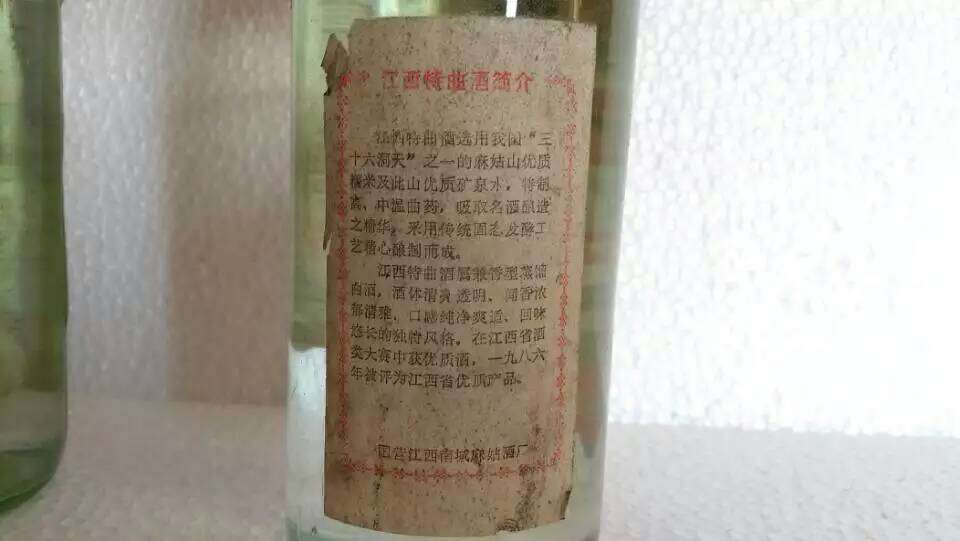 江西特曲酒简介
江西特曲酒选用我国“三
十六洞天”之一的麻姑山优质
糯米及此山优质矿泉水，特制
高、中温曲药，吸取名酒酿造
之精华，采用传统固态发酵工
艺精心酿制而成。
江西特曲酒属兼香型蒸馏
白酒，酒体清亮透明、闻香浓
郁清雅，口感纯净爽适、回味
悠长的独特风格。在江西省酒
类大赛中获优质酒，一九八六
年被评为江西省优质产品。
国营江西南城麻姑酒厂